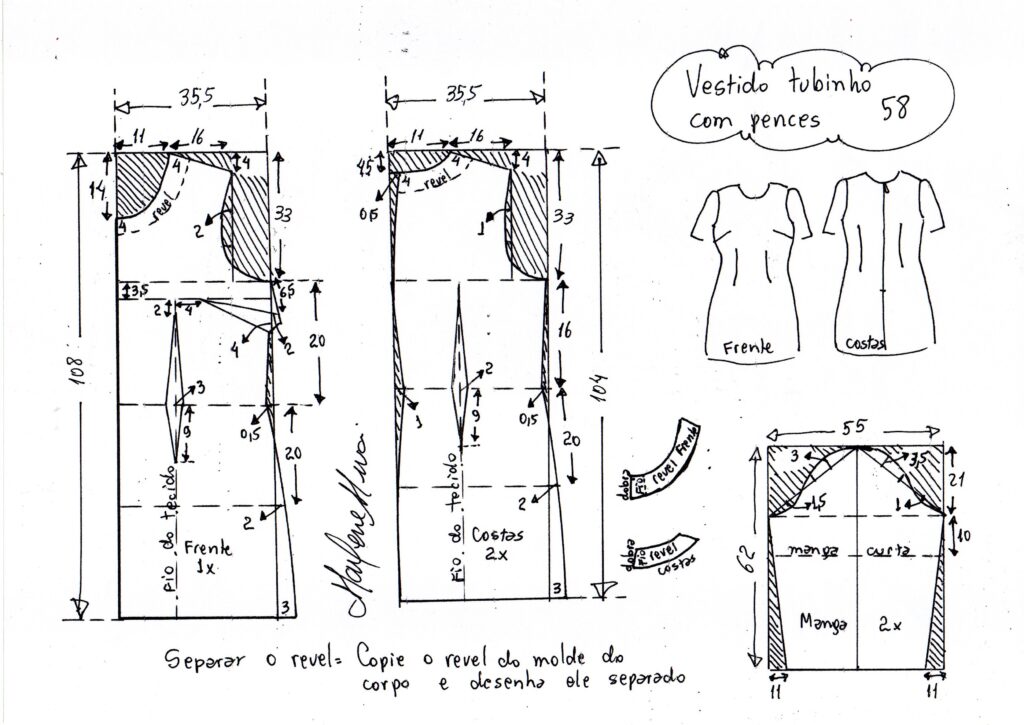 Vestido tubinho
com pences
58
35,5
11
16
14
4
4
4
revel
2
33
3,5
6,5
2
4
4
2
20
3
9
0,5
20
2
108
Fio do tecido
Frente
1x
3
35,5
11
16
4,5
4
4
revel
0,5
1
33
16
2
9
1
0,5
20
2
104
Fio do tecido
Costas
2x
3
Frente
costas
dobra
Fio
revel Frente
dobra
Fio
revel
costas
55
3
3,5
21
1,5
1
10
manga curta
62
Manga 2x
11
11
Separar o revel= Copie o revel do molde do
corpo e desenha ele separado